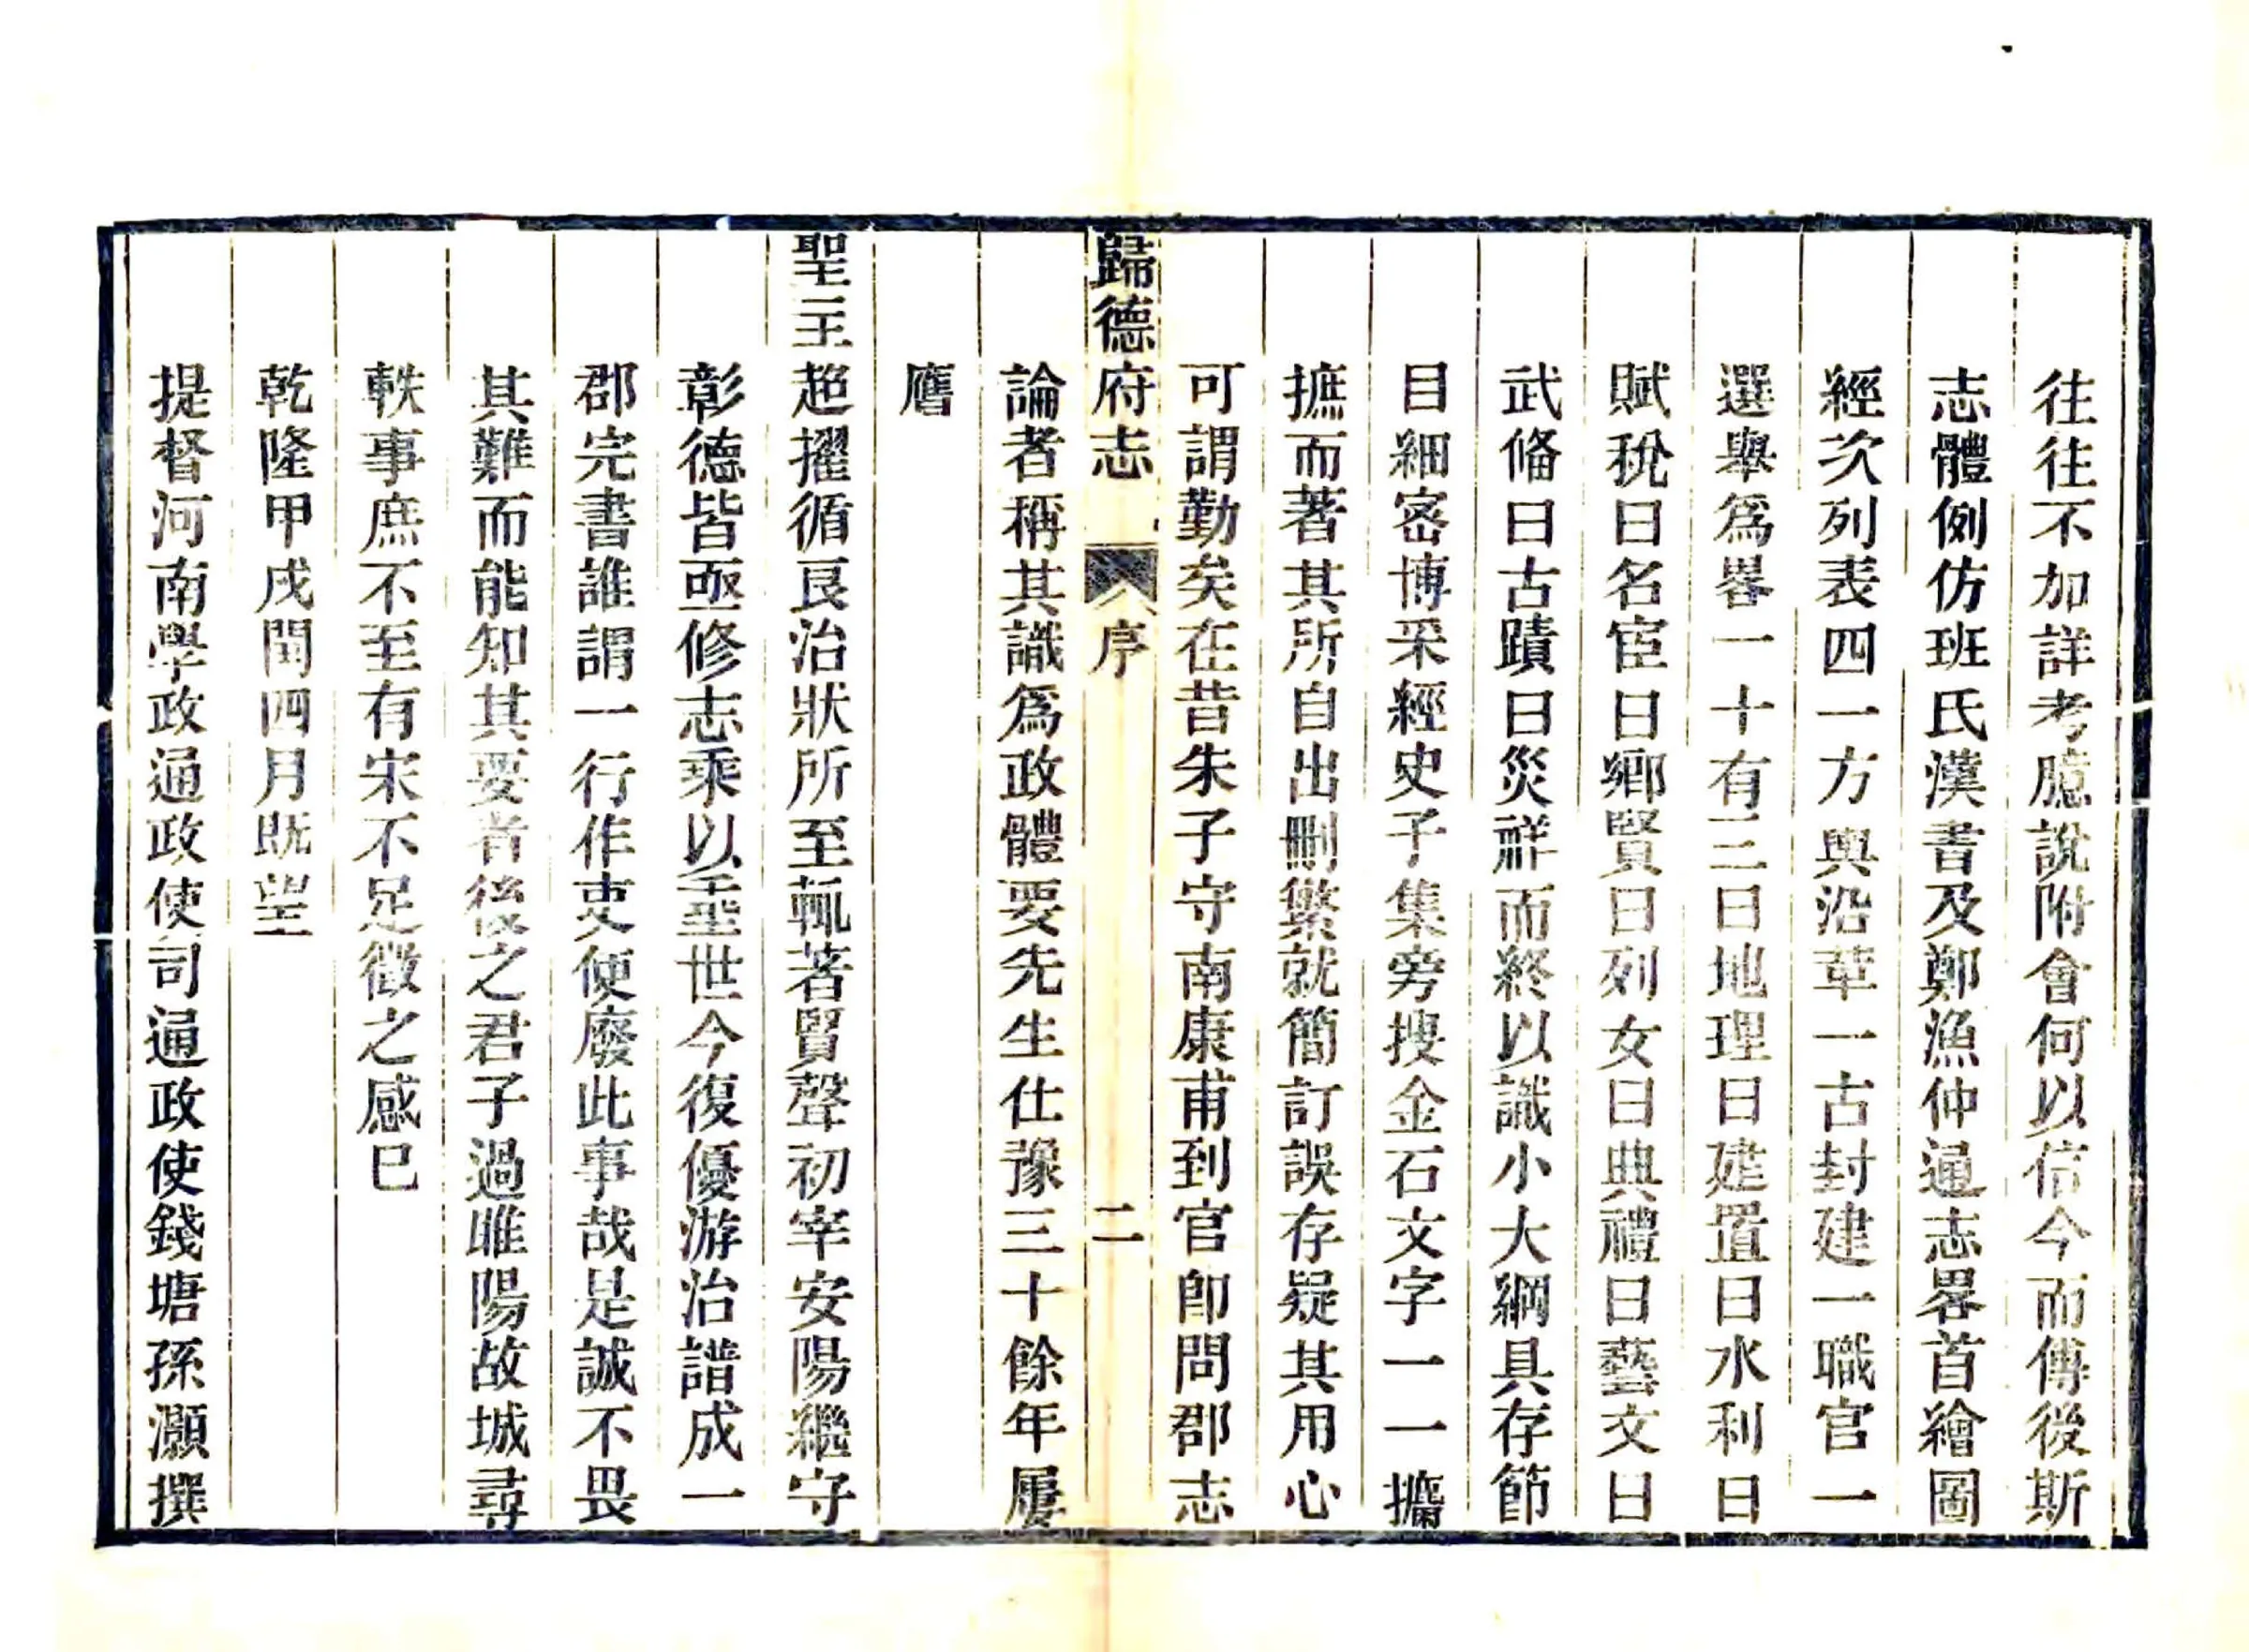 往往不加詳考臆說附會何以信今而傳後斯
志體例仿班氏漢書及鄭漁仲通志畧首繪圖
經次列表四一方輿沿革一古封建一職官一
選舉爲畧一十有三曰地理曰建置曰水利曰
賦稅曰名宦曰鄉賢曰列女曰典禮曰藝文曰
武備曰古蹟曰災祥而終以識小大綱具存節
目細密博采經史子集旁搜金石文字一一攟
摭而著其所自出刪繁就簡訂誤存疑其用心
可謂勤矣在昔朱子守南康甫到官卽問郡志
歸德府志 序 二
論者稱其識爲政體要先生仕豫三十餘年屢
膺
聖主超擢循良治狀所至輒著賢聲初宰安陽繼守
彰德皆亟修志乘以垩世今復優游治譜成一
郡完書誰謂一行作吏便廢此事哉是誠不畏
其難而能知其要者後之君子過睢陽故城尋
軼事庶不至有宋不足徵之感已
乾隆甲戌閏四月既望
提督河南學政通政使司通政使錢塘孫灝撰